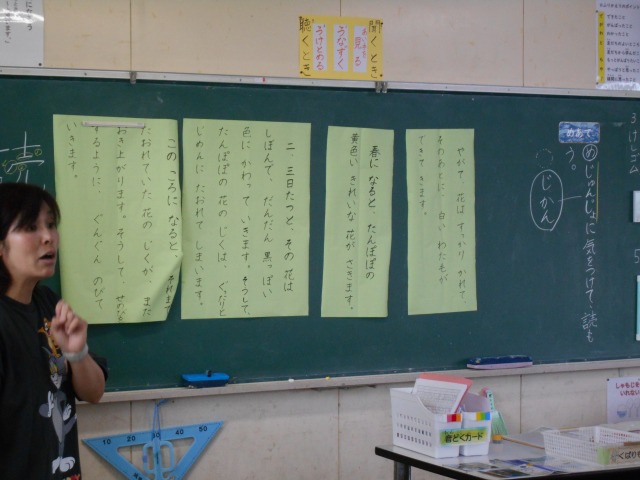 聞くとき
見る
うなずく
うけとめる
聴くとき
めあて
じゅんじょに気をつけて、読も
う。
じかん
やがて、花は すっかり かれて、
そのあとに、白い わた毛が
できて きます。
春に なると、たんぽぽの
黄色い きれいな 花が さきます。
二、三日たつと、その花は
しぼんで、だんだん 黒っぽい
色に かわって いきます。そうして、
たんぽぽの 花の じくは、ぐったりと
じめんに たおれて しまいます。
この ころに なると、それまで
たおれていた 花の じくが、また
おき上がります。そうして、せのびを
するように、ぐんぐん のびて
いきます。
10 20 30 40 50
音どくカード